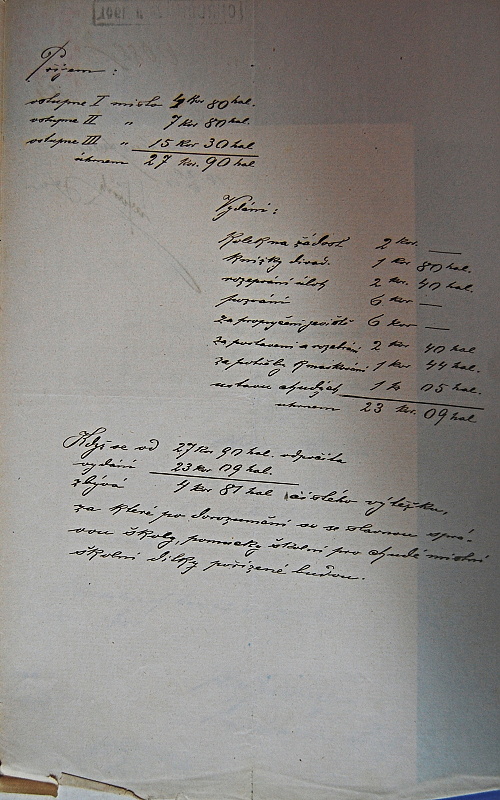 Příjem:
vstupné I místo 4 Kor 80 hal.
vstupné II „ 7 Kor 80 hal.
vstupné III „ 15 Kor 30 hal
úhrnem 27 Kor. 90 hal
Vydání:
Kolek na žádost 2 Kor. —
Knížky divad. 1 Kor 80 hal.
rozepsání úloh 2 Kor. 40 hal.
pozvání 6 Kor —
za propůjčení jeviště 6 Kor —
za postavení a rozebrání 2 Kor 40 hal
za potřeby k maskování 1 Kor 44 hal.
ústavu chudých 1 k 05 hal.
úhrnem 23 Kor. 09 hal
Když se od 27 Kor 90 hal. odpočítá
vydání 23 Kor 09 hal.
zbývá 4 Kor 81 hal čistého výtěžku,
za které po dorozumění se se slavnou sprá-
vou školy, pomůcky školní pro chudé místní
školní dítky pořízené budou.